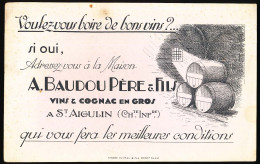 Voulez-vous boire de bons vins ?...
si oui,
Adressez-vous à la Maison
A. BAUDOU PÈRE & FILS
VINS & COGNAC EN GROS
A ST AIGULIN (CHTE INFRE)
qui vous fera les meilleures conditions